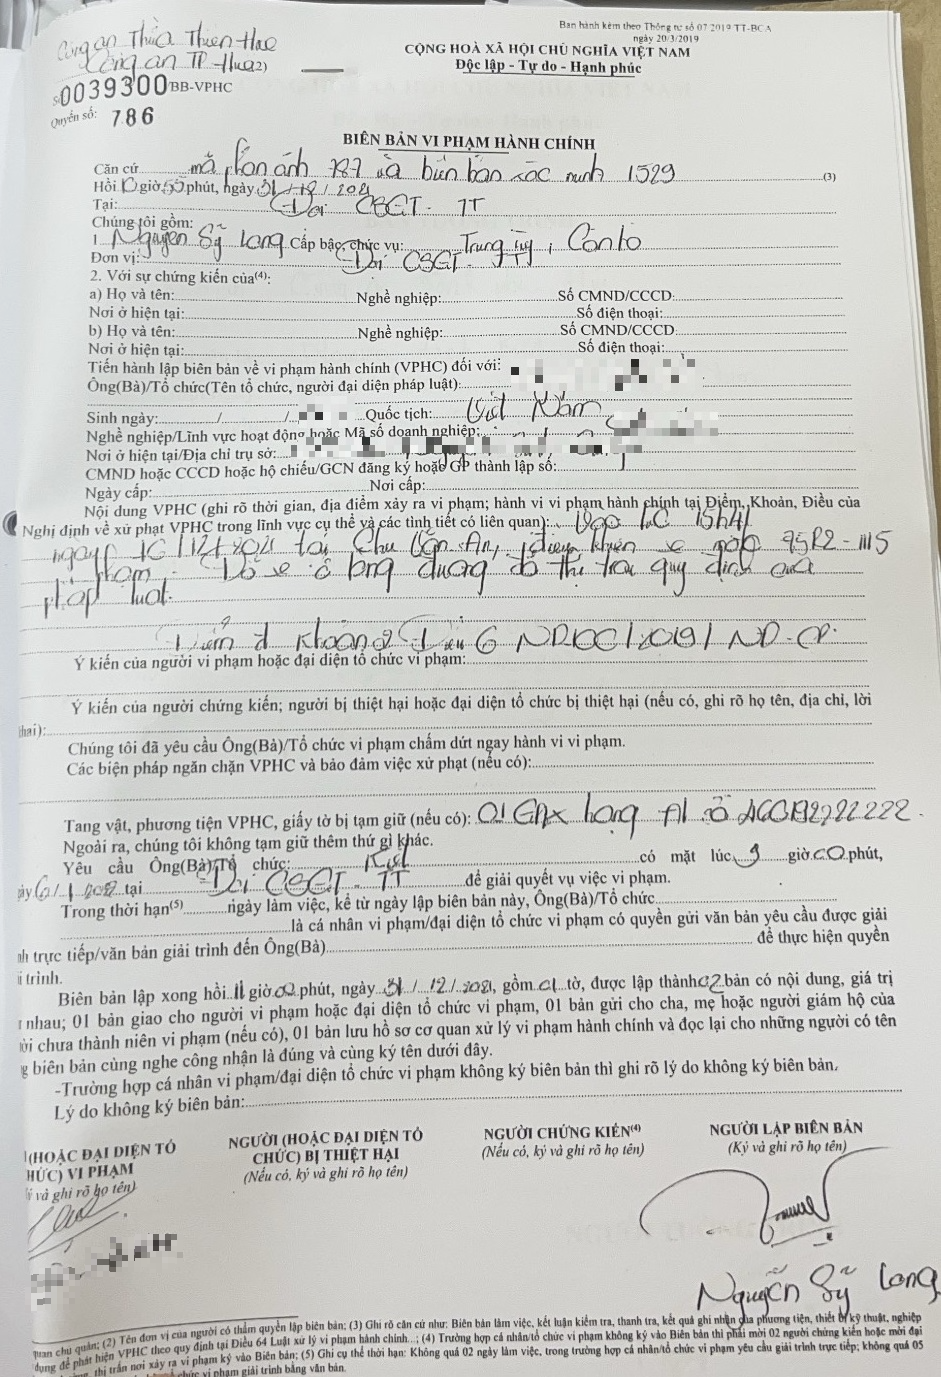 Ban hành kèm theo Thông tư số 07 2019 TT-BCA
ngày 20/3/2019
Công an Thừa Thiên Huế
CỘNG HOÀ XÃ HỘI CHỦ NGHĨA VIỆT NAM
Công an TP Huế(2)
Độc lập - Tự do - Hạnh phúc
Số 0039300/BB-VPHC
Quyển số: 786
BIÊN BẢN VI PHẠM HÀNH CHÍNH
Căn cứ mã phản ánh 787 và biên bản xác minh 1529 (3)
Hồi 10 giờ 50 phút, ngày 31/12/2021
Tại: Đội CSGT-TT
Chúng tôi gồm:
1 Nguyễn Sỹ Long Cấp bậc, chức vụ: Trung úy, Cán bộ
Đơn vị: Đội CSGT-TT
2. Với sự chứng kiến của(4):
a) Họ và tên: Nghề nghiệp: Số CMND/CCCD:
Nơi ở hiện tại: Số điện thoại:
b) Họ và tên: Nghề nghiệp: Số CMND/CCCD:
Nơi ở hiện tại: Số điện thoại:
Tiến hành lập biên bản về vi phạm hành chính (VPHC) đối với:
Ông(Bà)/Tổ chức(Tên tổ chức, người đại diện pháp luật):
Sinh ngày: / / Quốc tịch: Việt Nam
Nghề nghiệp/Lĩnh vực hoạt động hoặc Mã số doanh nghiệp:
Nơi ở hiện tại/Địa chỉ trụ sở:
CMND hoặc CCCD hoặc hộ chiếu/GCN đăng ký hoặc GP thành lập số:
Ngày cấp: Nơi cấp:
Nội dung VPHC (ghi rõ thời gian, địa điểm xảy ra vi phạm; hành vi vi phạm hành chính tại Điểm, Khoản, Điều của
Nghị định về xử phạt VPHC trong lĩnh vực cụ thể và các tình tiết có liên quan): Vào lúc 15h41
ngày 12/2021 tại Chu Văn An, điều khiển xe 75R2-1115
phạm: Đỗ xe ở lòng đường đô thị trái quy định của
pháp luật.
Điểm đ Khoản 2 Điều 6 NĐ100/2019/NĐ-CP.
Ý kiến của người vi phạm hoặc đại diện tổ chức vi phạm:
Ý kiến của người chứng kiến; người bị thiệt hại hoặc đại diện tổ chức bị thiệt hại (nếu có, ghi rõ họ tên, địa chỉ, lời
hai):
Chúng tôi đã yêu cầu Ông(Bà)/Tổ chức vi phạm chấm dứt ngay hành vi vi phạm.
Các biện pháp ngăn chặn VPHC và bảo đảm việc xử phạt (nếu có):
Tang vật, phương tiện VPHC, giấy tờ bị tạm giữ (nếu có): 01 GPLX hạng A1 số
Ngoài ra, chúng tôi không tạm giữ thêm thứ gì khác.
Yêu cầu Ông(Bà)/Tổ chức: có mặt lúc 9 giờ 00 phút,
tại Đội CSGT-TT để giải quyết vụ việc vi phạm.
Trong thời hạn(5) ngày làm việc, kể từ ngày lập biên bản này, Ông(Bà)/Tổ chức
là cá nhân vi phạm/đại diện tổ chức vi phạm có quyền gửi văn bản yêu cầu được giải
nh trực tiếp/văn bản giải trình đến Ông(Bà) để thực hiện quyền
i trình.
Biên bản lập xong hồi 11 giờ 00 phút, ngày 31/12/2021, gồm 01 tờ, được lập thành 02 bản có nội dung, giá trị
nhau; 01 bản giao cho người vi phạm hoặc đại diện tổ chức vi phạm, 01 bản gửi cho cha, mẹ hoặc người giám hộ của
chưa thành niên vi phạm (nếu có), 01 bản lưu hồ sơ cơ quan xử lý vi phạm hành chính và đọc lại cho những người có tên
g biên bản cùng nghe công nhận là đúng và cùng ký tên dưới đây.
-Trường hợp cá nhân vi phạm/đại diện tổ chức vi phạm không ký biên bản thì ghi rõ lý do không ký biên bản.
Lý do không ký biên bản:
(HOẶC ĐẠI DIỆN TỔ NGƯỜI (HOẶC ĐẠI DIỆN TỔ NGƯỜI CHỨNG KIẾN(4) NGƯỜI LẬP BIÊN BẢN
HỨC) VI PHẠM CHỨC) BỊ THIỆT HẠI (Nếu có, ký và ghi rõ họ tên) (Ký và ghi rõ họ tên)
ý và ghi rõ họ tên) (Nếu có, ký và ghi rõ họ tên)
Nguyễn Sỹ Long
quan chủ quản; (2) Tên đơn vị của người có thẩm quyền lập biên bản; (3) Ghi rõ căn cứ như: Biên bản làm việc, kết luận kiểm tra, thanh tra, kết quả ghi nhận của phương tiện, thiết bị kỹ thuật, nghiệp
dụng để phát hiện VPHC theo quy định tại Điều 64 Luật xử lý vi phạm hành chính...; (4) Trường hợp cá nhân/tổ chức vi phạm không ký vào Biên bản thì phải mời 02 người chứng kiến hoặc mời đại
thị trấn nơi xảy ra vi phạm ký vào Biên bản; (5) Ghi cụ thể thời hạn: Không quá 02 ngày làm việc, trong trường hợp cá nhân/tổ chức vi phạm yêu cầu giải trình trực tiếp; không quá 05
chức vi phạm giải trình bằng văn bản.